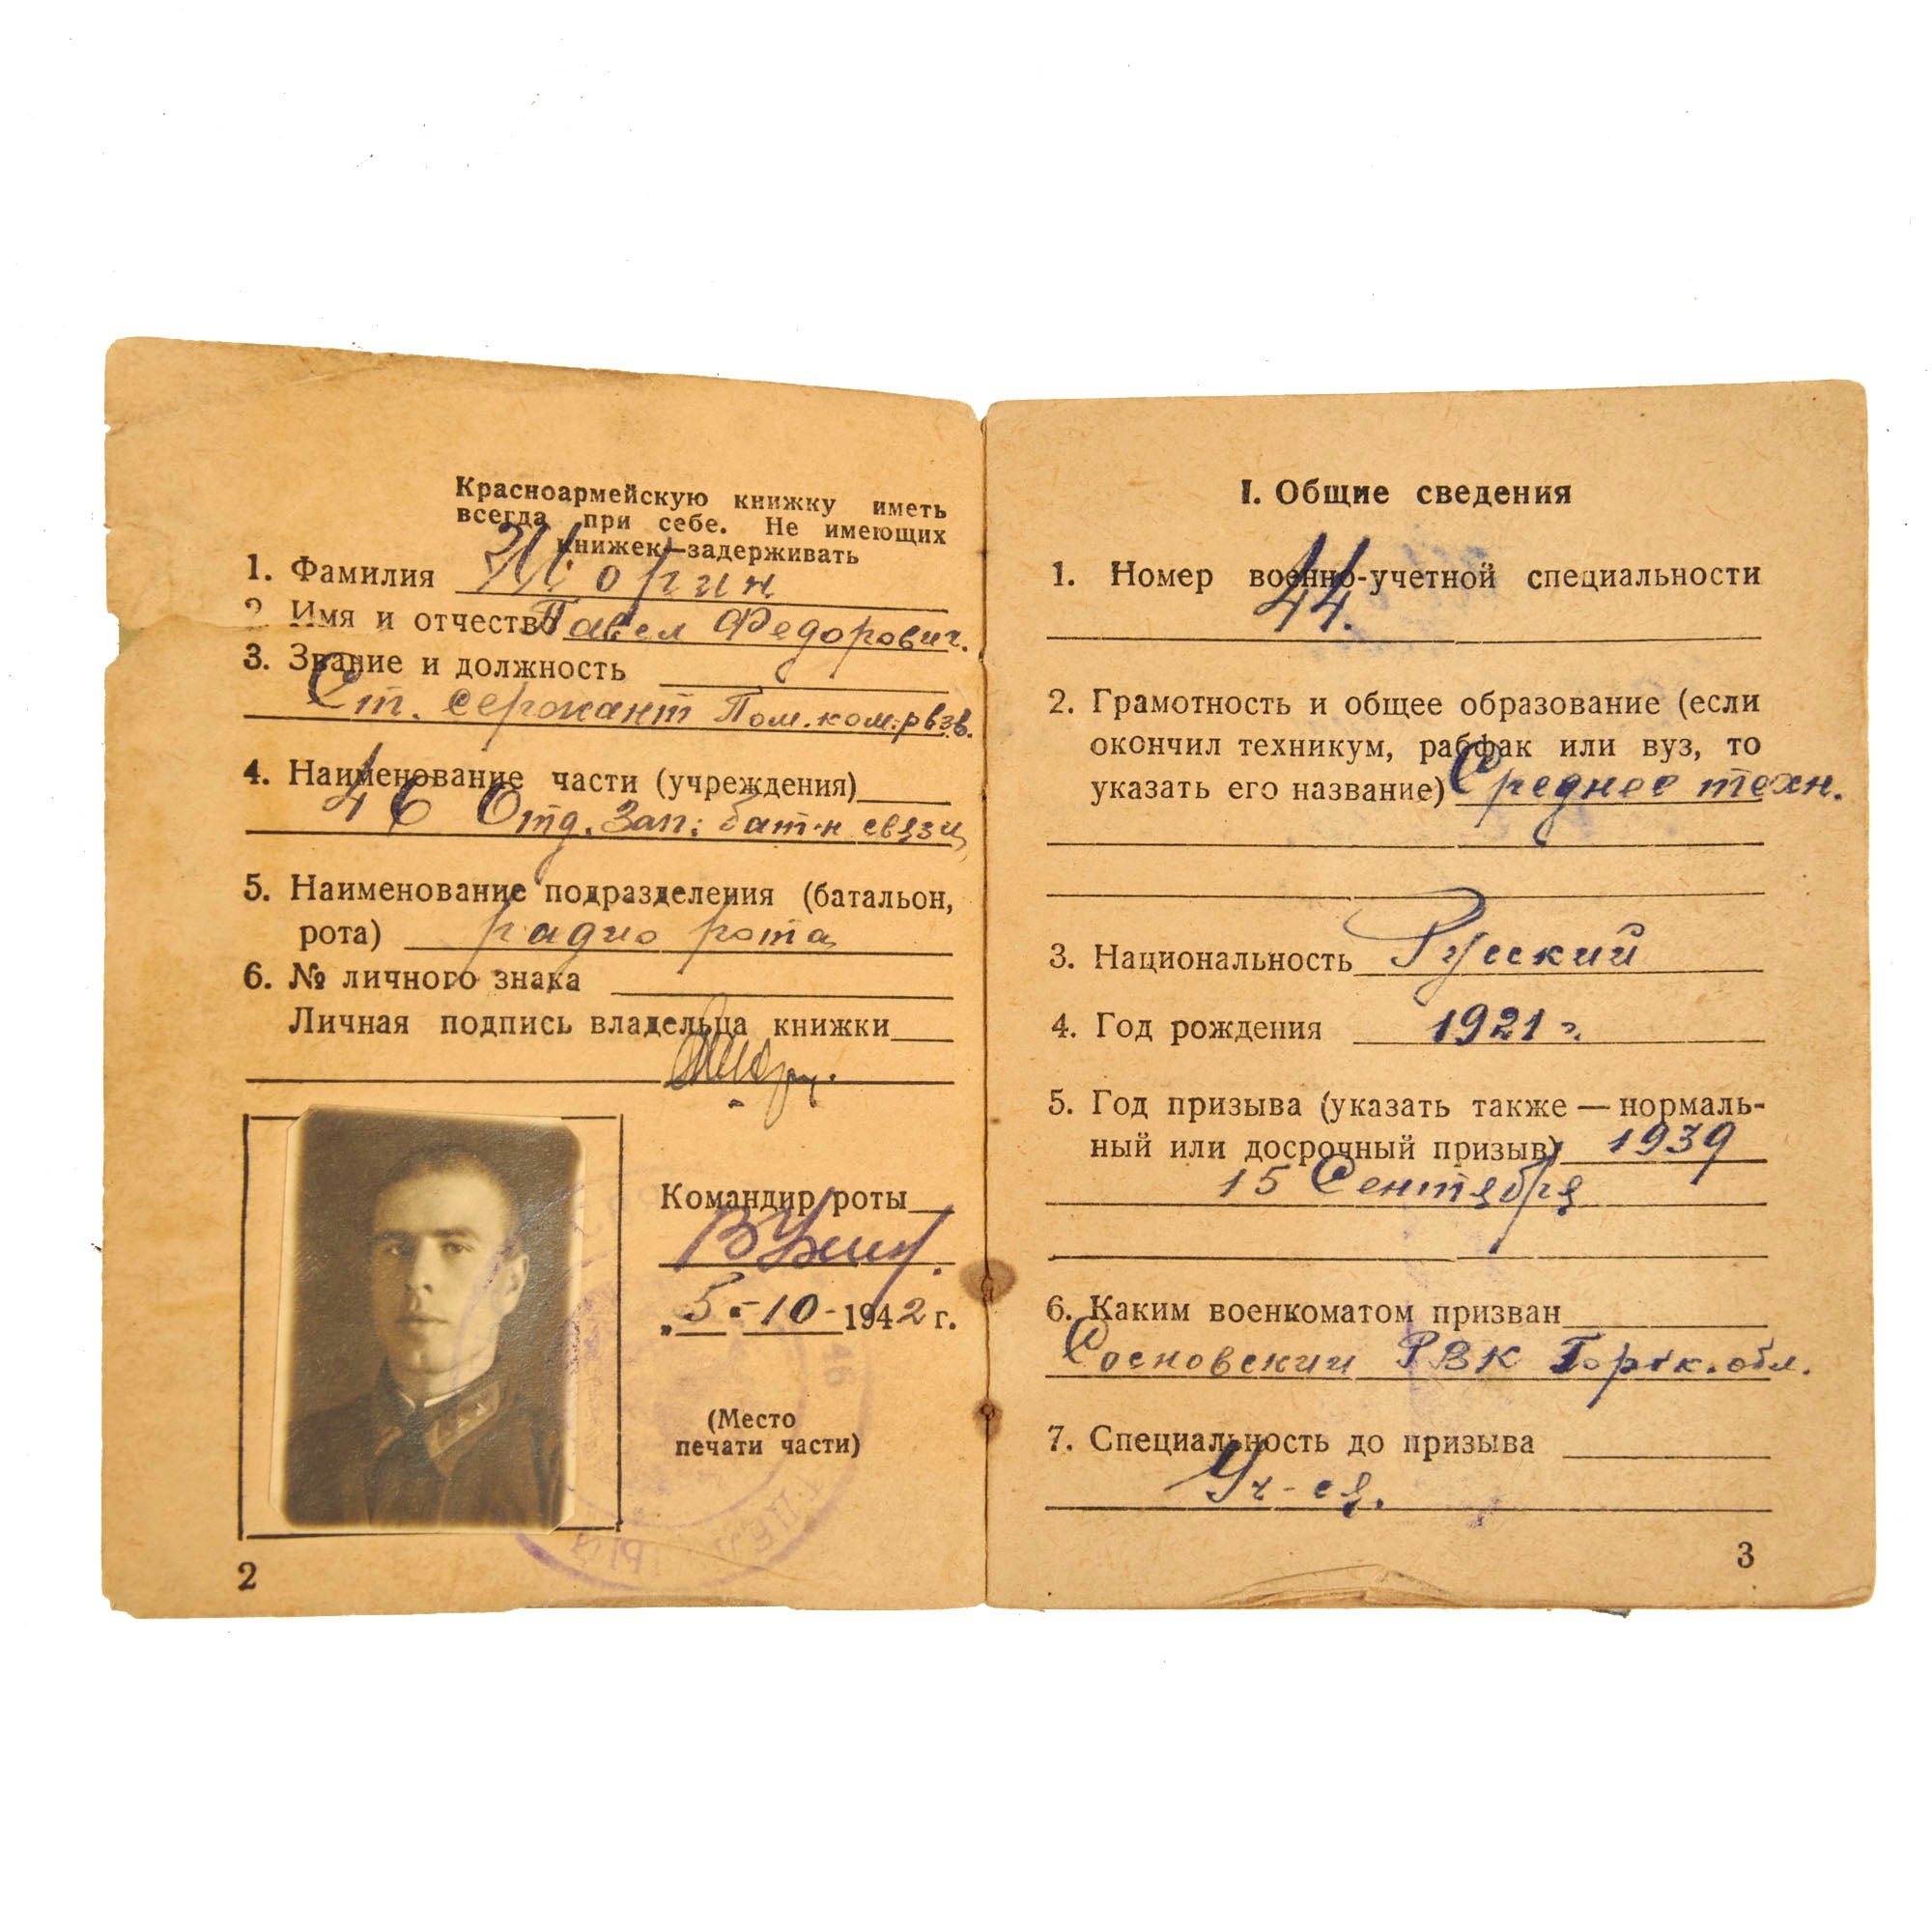 Красноармейскую книжку иметь
всегда при себе. Не имеющих
книжек—задерживать
1. Фамилия
2. Имя и отчество Павел Федорович.
3. Звание и должность
Ст. сержант Пом. ком. рвзв.
4. Наименование части (учреждения)
46 Отд. Зап. бат-н связи
5. Наименование подразделения (батальон,
рота) радио рота
6. № личного знака
Личная подпись владельца книжки
Командир роты
„5"-10-1942 г.
(Место
печати части)
2
I. Общие сведения
1. Номер военно-учетной специальности
44.
2. Грамотность и общее образование (если
окончил техникум, рабфак или вуз, то
указать его название) Среднее техн.
3. Национальность Русский
4. Год рождения 1921 г.
5. Год призыва (указать также — нормаль-
ный или досрочный призыв) 1939
15 Сентября
6. Каким военкоматом призван
Сосновский РВК Горьк. обл.
7. Специальность до призыва
3